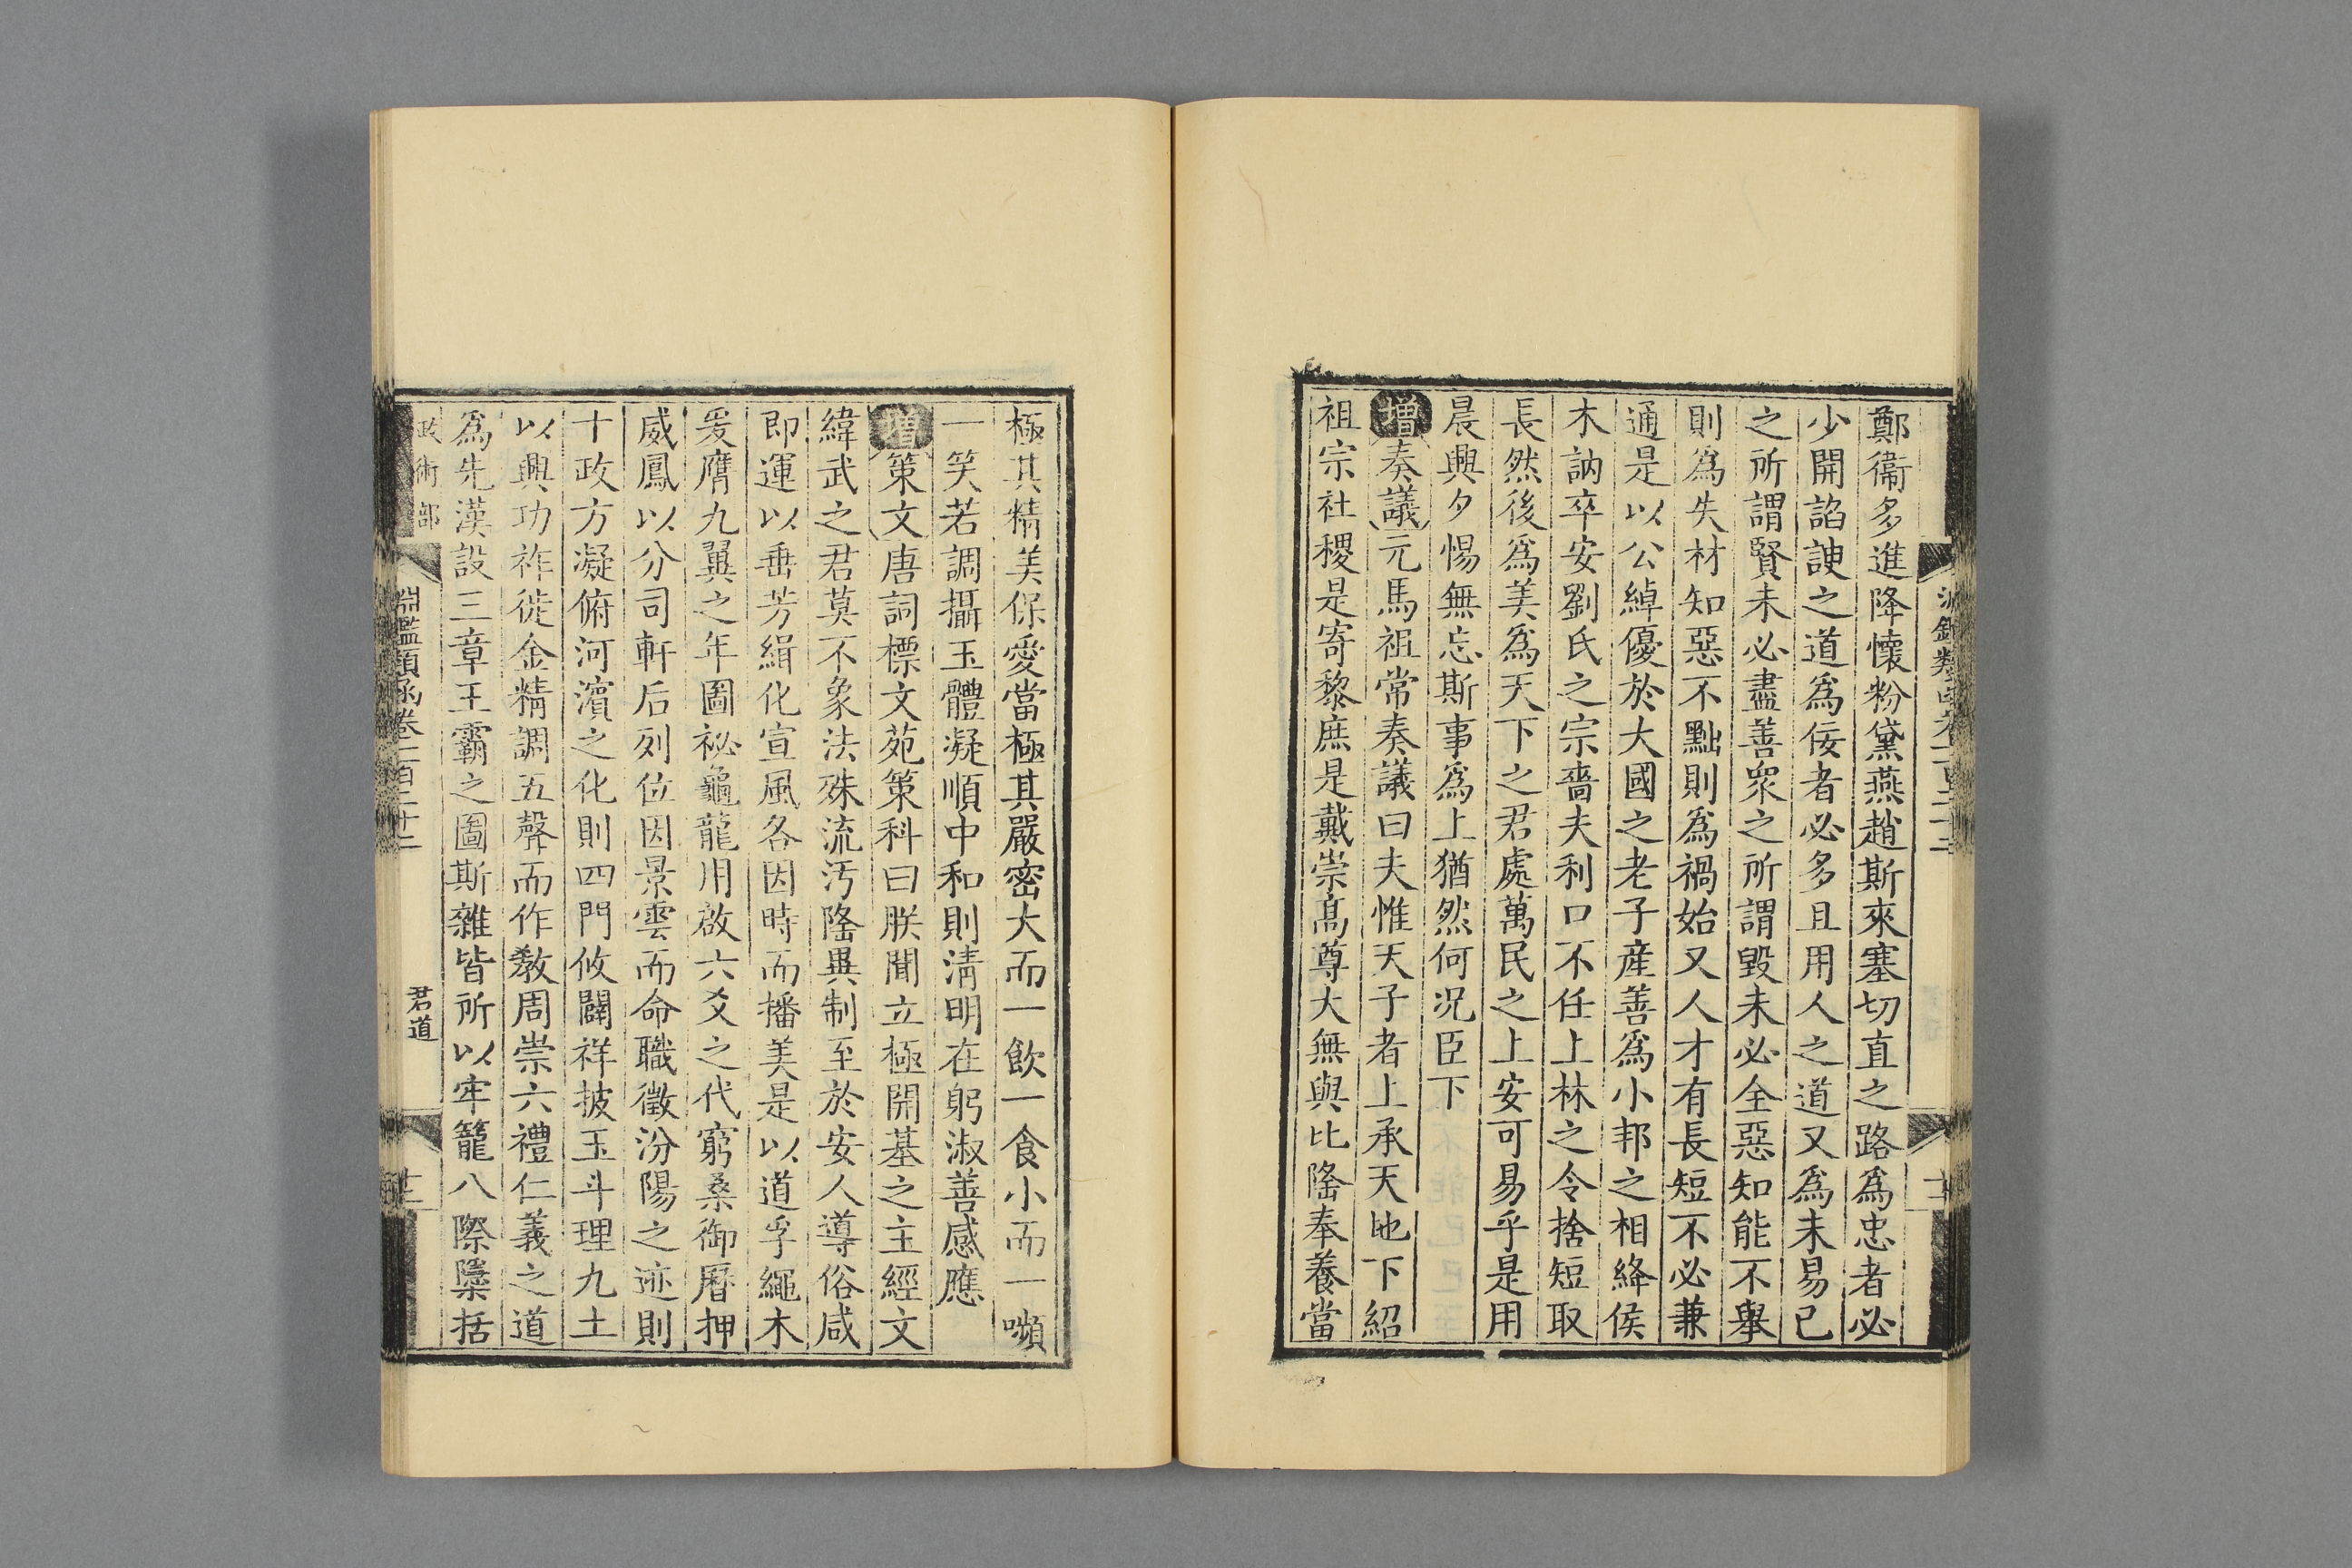 鄭衞多進降懷粉黛燕趙斯來塞切直之路爲忠者必
少開諂諛之道爲佞者必多且用人之道又爲未易已
之所謂賢未必盡善衆之所謂毀未必全惡知能不舉
則爲失材知惡不黜則爲禍始又人才有長短不必兼
通是以公綽優於大國之老子産善爲小邦之相絳侯
木訥卒安劉氏之宗嗇夫利口不任上林之令捨短取
長然後爲美爲天下之君處萬民之上安可易乎是用
晨興夕惕無忘斯事爲上猶然何况臣下
增奏議元馬祖常奏議曰夫惟天子者上承天地下紹
祖宗社稷是寄黎庶是戴崇高尊大無與比隆奉養當
極其精美保愛當極其嚴密大而一飲一食小而一嚬
一笑若調攝玉體凝順中和則淸明在躬淑善感應
增策文唐詞標文苑策科曰朕聞立極開基之主經文
緯武之君莫不象法殊流汚隆異制至於安人導俗咸
即運以垂芳緝化宣風各因時而播美是以道孚繩木
爰膺九翼之年圖祕龜龍用啟六爻之代窮桑御曆押
威鳳以分司軒后列位因景雲而命職徵汾陽之迹則
十政方凝俯河濱之化則四門攸闢祥披玉斗理九土
以興功祚徙金精調五聲而作敎周崇六禮仁義之道
爲先漢設三章王霸之圖斯雜皆所以牢籠八際檃括
政術部
淵鑑類函卷一百二十二
君道
十二